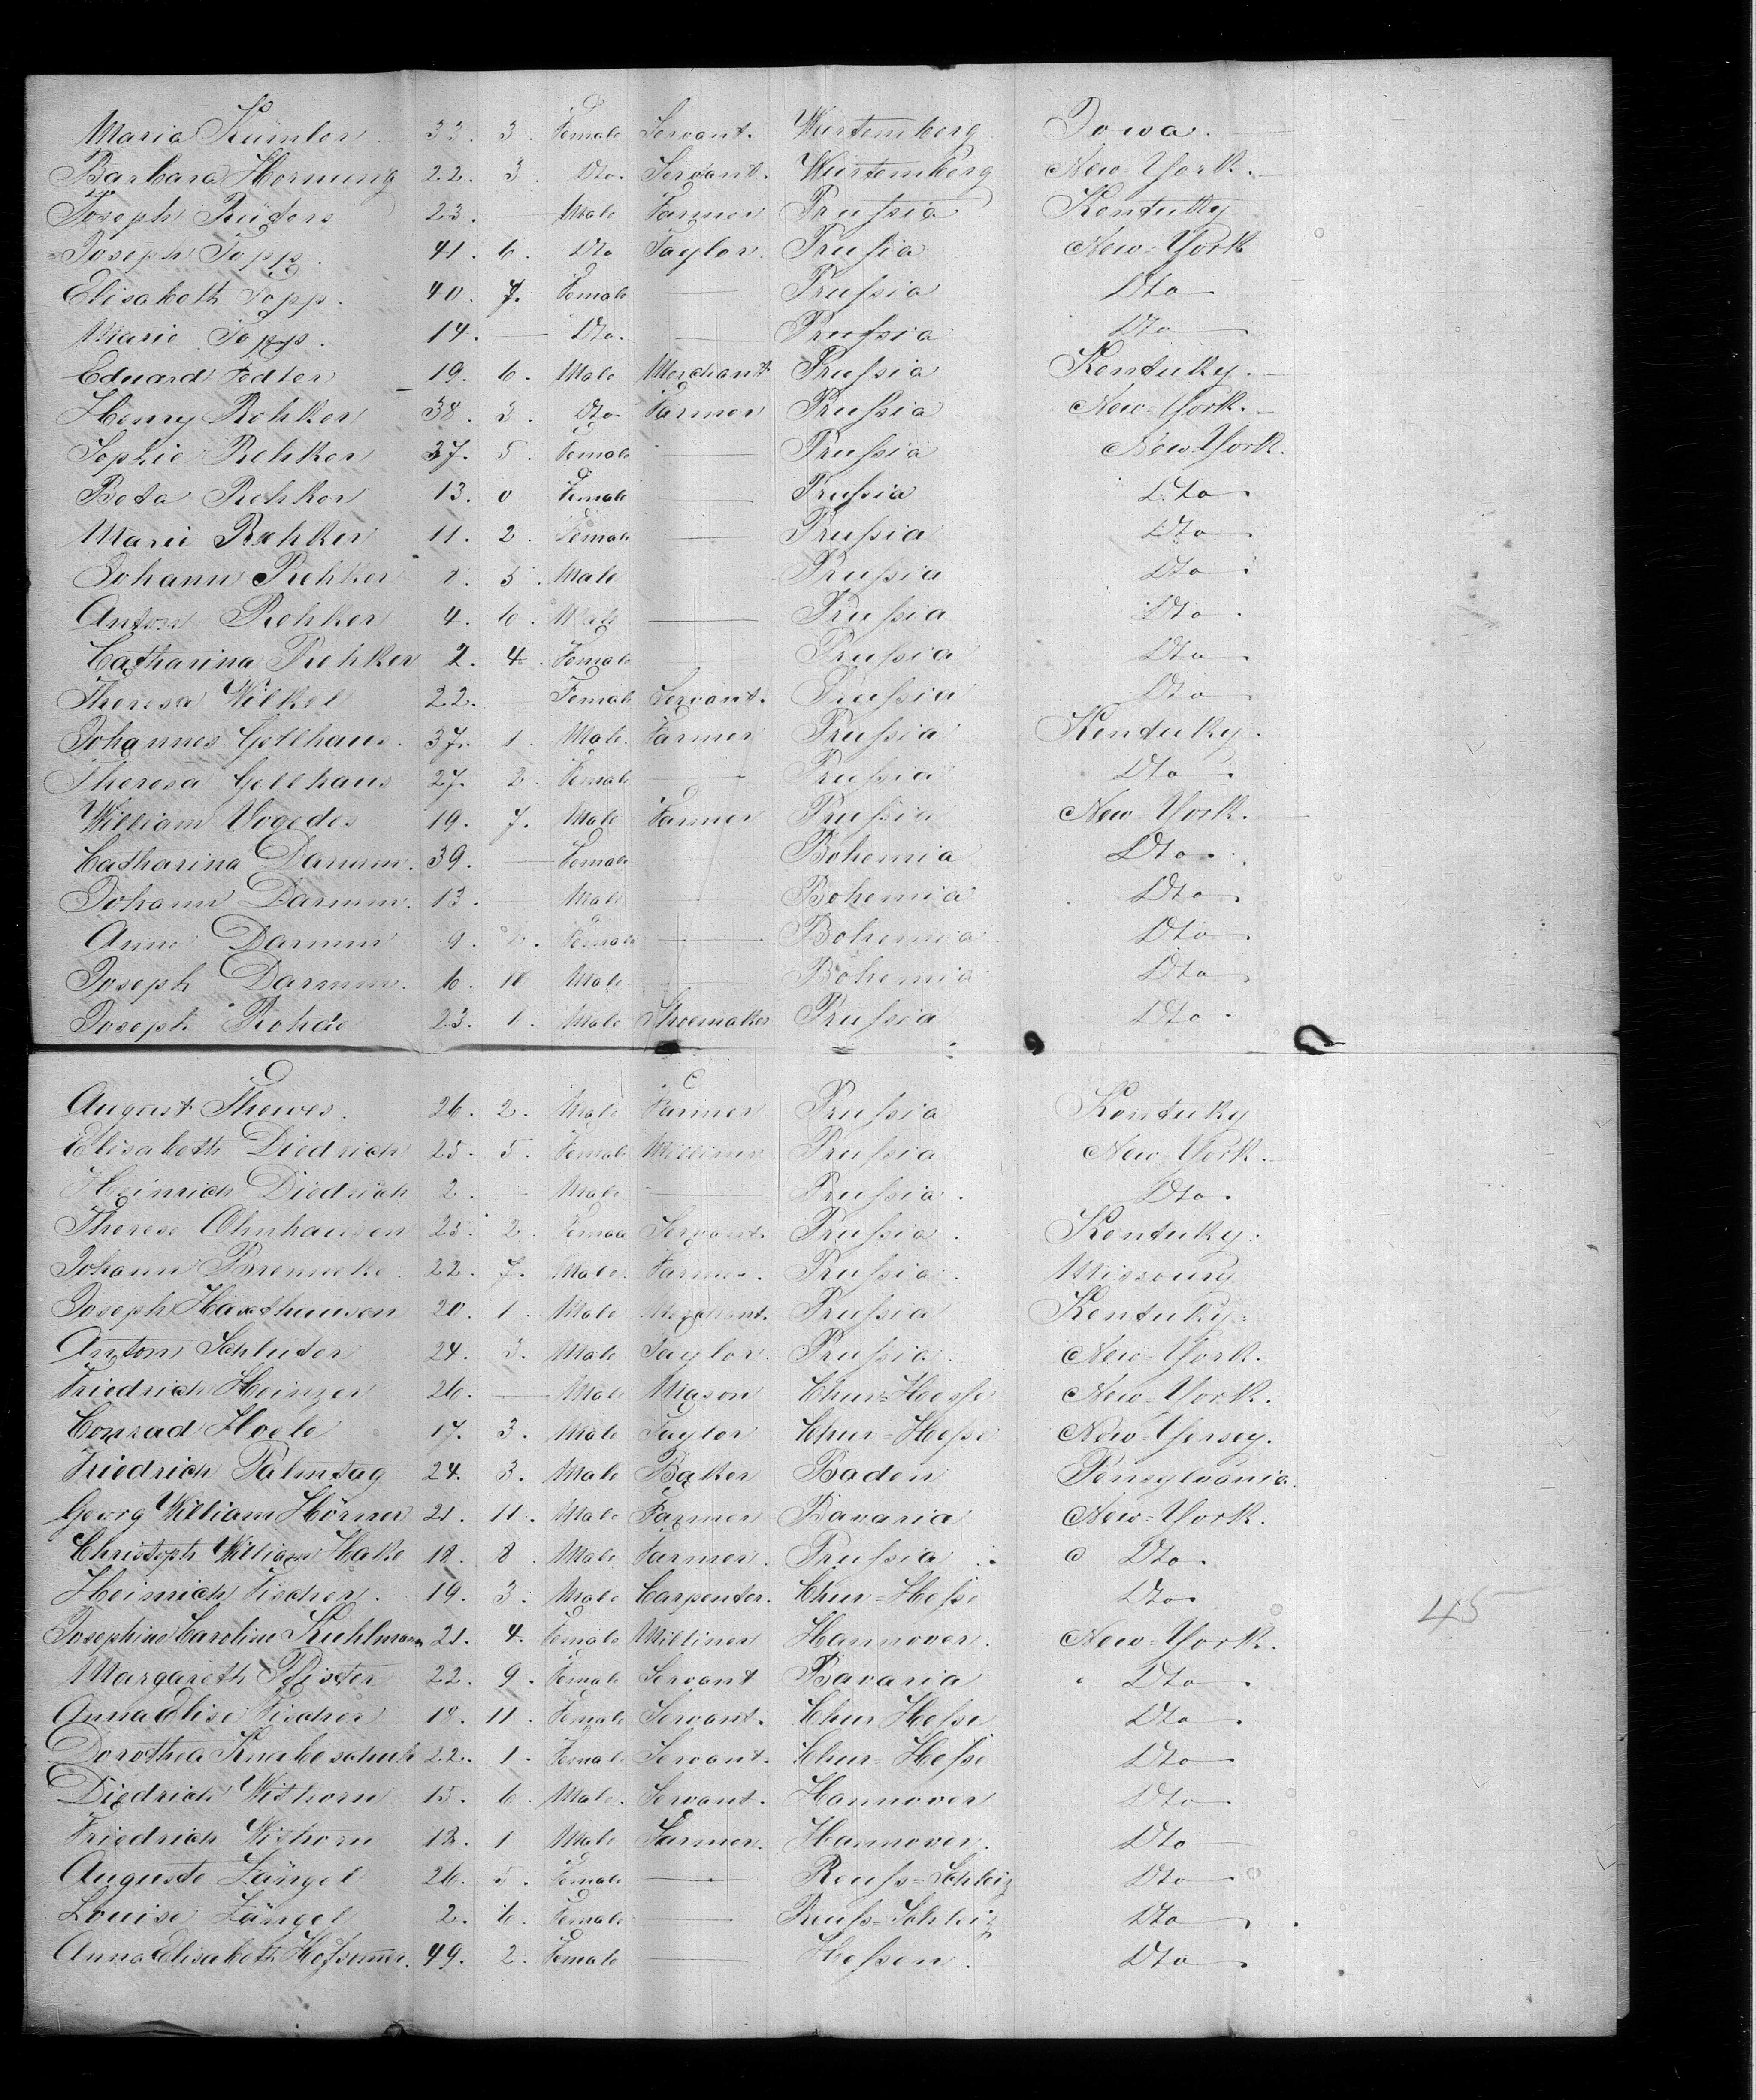 Maria Kümler. 33. 3. Female Servant. Würtemberg Iowa.
Barbara Hornung 22. 3. Dto. Servant. Würtemberg New-York.
Joseph Rüders 23. Male Farmer Prussia Kentukky
Joseph Topp. 41. 6. Dto Taylor. Prussia New-York
Elisabeth Topp. 40. 7. Female — Prussia Dto
Marie Topp. 14. — Dto. — Prussia Dto
Eduard Fedler 19. 6. Male Merchant Prussia Kentuky.
Henry Rehker 38. 3. Dto Farmer Prussia New-York.
Sophie Rehker 37. 5. Female — Prussia New-York.
Beta Rehker 13. 0 Female — Prussia Dto
Marie Rehker 11. 2. Female — Prussia Dto
Johann Rehker 8. 5. Male Prussia Dto
Anton Rehker 4. 6. Male — Prussia Dto
Catharina Rehker 2. 4. Female Prussia Dto
Theresa Wilkel 22. Female Servant. Prussia Dto
Johannes Gellhaus. 37. 1. Male. Farmer Prussia Kentuky.
Theresa Gellhaus 27. 2. Female — Prussia Dto
William Vogedes 19. 7. Male Farmer Prussia New-York.
Catharina Damm. 39. — Female Bohemia Dto.
Johann Damm. 13. — Male — Bohemia Dto
Anna Damm 9. Female — Bohemia Dto
Joseph Damm. 6. 10 Male — Bohemia Dto
Joseph Rohde 23. 1. Male Shoemaker Prussia Dto
August Thewes. 26. 2. Male Farmer Prussia Kentuky
Elisabeth Diedrich 25. 5. Female Milliner Prussia New-York.
Heinrich Diedrich 2. — Male — Prussia. Dto.
Therese Ohnhausen 25. 2. Female Servant. Prussia. Kentuky.
Johann Bremecke. 22. 7. Male. Farmer. Prussia. Missoury
Joseph Haxthausen 20. 1. Male Merchant. Prussia Kentuky.
Anton Schluter 24. 3. Male Taylor. Prussia. New-York.
Friedrich Heinzer 26. — Male Mason Chur-Hesse New-York.
Conrad Hoele 17. 3. Male Taylor Chur-Hesse New-Yersey.
Friedrich Palmtag 24. 3. Male Baker Baden Pensylvania.
Georg William Hörner 21. 11. Male Farmer Bavaria New-York.
Christoph William Hake 18. 8. Male Farmer. Prussia Dto.
Heinrich Fischer. 19. 3. Male Carpenter. Chur-Hesse Dto
45
Josephine Caroline Kuhlmann 21. 4. Female Milliner Hannover. New-York.
Margareth Pfister 22. 9. Female Servant Bavaria Dto
Anna Elise Fischer 18. 11. Female Servant. Chur Hesse Dto.
Dorothea Knabeschuh 22. 1. Female Servant. Chur-Hesse Dto
Diedrich Withorn 15. 6. Male. Servant. Hannover Dto
Friedrich Withorn 18. 1 Male Farmer. Hannover. Dto
Auguste Zängel 26. 5. Female — Reuss-Schleiz Dto
Louise Zängel 2. 6. Female — Reuss-Schleiz Dto
Anna Elisabeth 49. 2. Female — Hessen. Dto